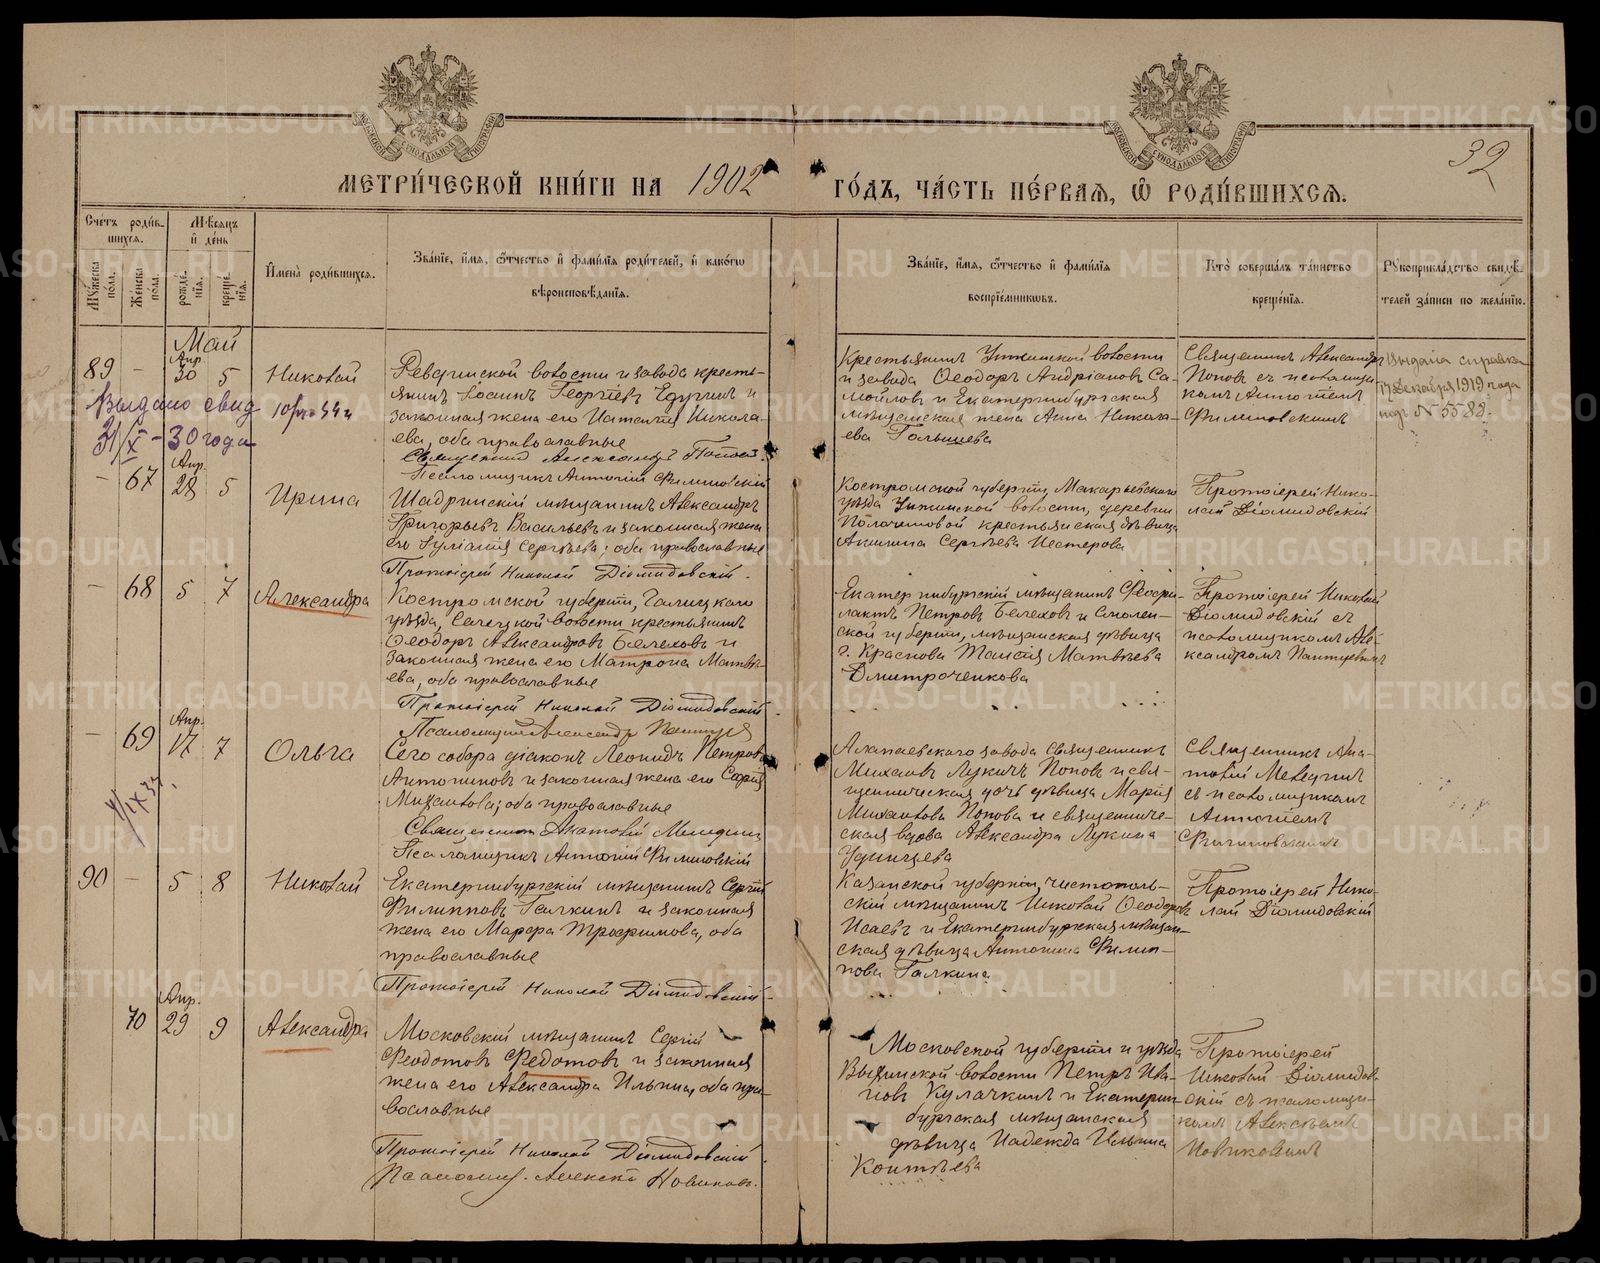 МЕТРИ́ЧЕСКОЙ КНИ́ГИ НА 1902 ГО́ДЪ, ЧА́СТЬ ПЕ́РВАѦ, Ѡ҆ РОДИ́ВШИХСѦ.
32
Сче́тъ роди́в-
шихсѧ.
Му́жеска пола.
Же́нска пола.
Мѣ́сѧцъ
и҆ де́нь
рожде́нїѧ.
креще́нїѧ.
И҆мена̀ роди́вшихсѧ.
Зва́нїе, и҆́мѧ, ѻ҆́тчество и҆ фами́лїѧ роди́телей, и҆ како́гѡ
вѣроисповѣ́данїѧ.
Зва́нїе, и҆́мѧ, ѻ҆́тчество и҆ фами́лїѧ
воспрїе́мникѡвъ.
Кто̀ соверша́лъ та́инство
креще́нїѧ.
Рꙋкоприкла́дство свидѣ́-
телей за́писи по жела́нїю.
Май
89 - Апр. 30 5 Николай
Ревдинской волости и завода кресть-
янинъ Іосифъ Георгіевъ и
законная жена его Наталія Никола-
ева, оба православные
Священникъ Александръ Попов
Псаломщикъ Антоній Филиповскій
Крестьянинъ волости
и завода Ѳеодоръ Андріановъ Са-
мойловъ и Екатеринбургская
мѣщанская жена Анна Никола-
ева Голышева
Священникъ Александръ
Поповъ съ псаломщи-
комъ Антоніемъ
Филиповскимъ
Выдана справка
Декабря 1919 года
№ 5589
Выдано свид
31/X - 30 года
- 67 Апр. 28 5 Ирина
Шадринскій мѣщанинъ Александръ
Григорьевъ Васильевъ и законная жена
его Іуліанія Сергѣева; оба православные
Протоіерей Николай Діомидовскій.
Костромской губерніи, Макарьевского
уѣзда волости, деревни
крестьянская дѣвица
Акилина Сергѣева Нестерова
Протоіерей Нико-
лай Діомидовскій
- 68 5 7 Александра
Костромской губерніи, Галицкаго
уѣзда, волости крестьянинъ
Ѳеодоръ Александровъ Белеховъ и
законная жена его Матрона Матвѣ-
ева, оба православные
Протоіерей Николай Діомидовскій
Псаломщикъ Александръ
Екатеринбургскій мѣщанинъ Феофи-
лактъ Петровъ Белеховъ и Смолен-
ской губерніи, мѣщанская дѣвица
г. Краснова Таисія Матвѣева
Дмитроченкова
Протоіерей Николай
Діомидовскій съ
псаломщикомъ Але-
ксандромъ
- 69 Апр. 17 7 Ольга
Сего собора діаконъ Леонидъ Петровъ
Антониновъ и законная жена его Софія
Михаилова; оба православные
Священникъ Анатолій
Псаломщикъ Антоній Филиповскій
Алапаевского завода священникъ
Михаилъ Лукичъ Поповъ и свя-
щенническая дочь дѣвица Марія
Михаилова Попова и священниче-
ская вдова Александра Лукина
Удинцева
Священникъ Ана-
толій
съ псаломщикомъ
Антоніемъ
Филиповскимъ
90 - 5 8 Николай
Екатеринбургскій мѣщанинъ Сергій
Филипповъ Галкинъ и законная
жена его Марфа Трофимова, оба
православные
Протоіерей Николай Діомидовскій
Казанской губерніи, чистополь-
скій мѣщанинъ Николай Ѳеодоровъ
Исаевъ и Екатеринбургская мѣщан-
ская дѣвица Антонина Филип-
пова Галкина
Протоіерей Нико-
лай Діомидовскій
70 Апр. 29 9 Александра
Московскій мѣщанинъ Сергій
Феодотовъ Федотовъ и законная
жена его Александра Ильина, оба пра-
вославные
Протоіерей Николай Діомидовскій
Псаломщ. Алексій Новиковъ.
Московской губерніи и уѣзда
волости Петръ Ива-
новъ Кулачкинъ и Екатерин-
бургская мѣщанская
дѣвица Надежда Ильина
Контѣева
Протоіерей
Николай Діомидов-
скій съ псаломщи-
комъ Алексѣемъ
Новиковымъ
METRIKI.GASO-URAL.RU